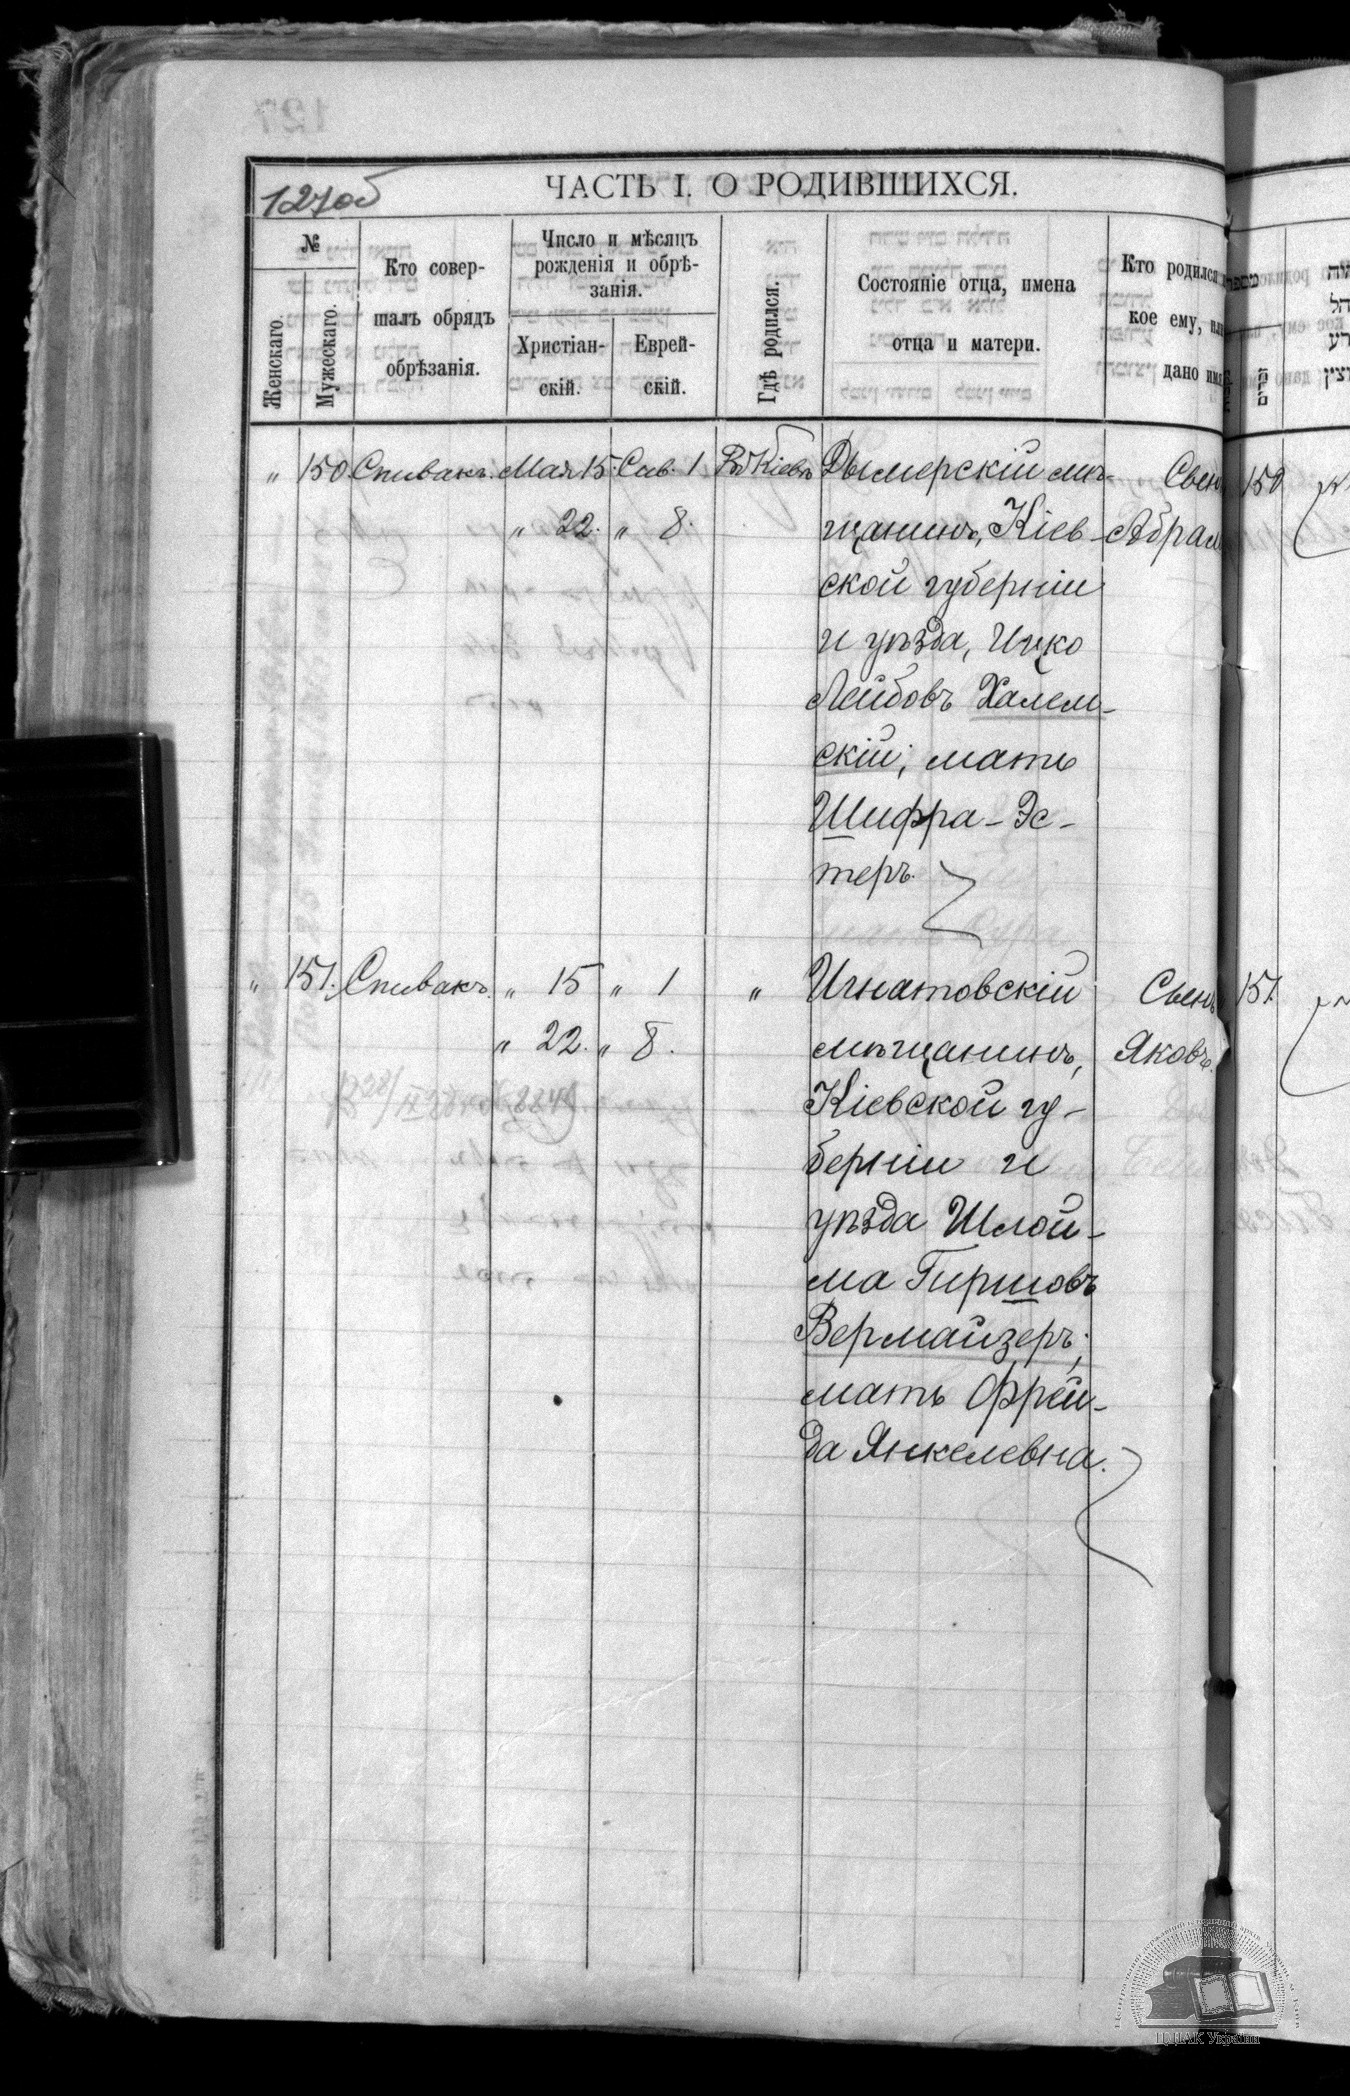 127об
ЧАСТЬ I. О РОДИВШИХСЯ.
№
Женскаго.
Мужескаго.
Кто совер-
шалъ обрядъ
обрѣзанія.
Число и мѣсяцъ
рожденія и обрѣ-
занія.
Христіан-
скій.
Еврей-
скій.
Гдѣ родился.
Состояніе отца, имена
отца и матери.
Кто родился
кое ему, или
дано имя
" 150 Спивакъ. Мая 15. Сив. 1 Въ Кіевѣ Дымерскій мѣ- Сынъ 150
" 22. " 8. щанинъ, Кіев- Абрам
ской губерніи
и уѣзда, Ицко
Лейбовъ Халем-
скій; мать
Шифра-Эс-
теръ.
" 151. Спивакъ. " 15 " 1 " Игнатовскій Сынъ 151.
" 22. " 8. мѣщанинъ, Яковъ.
Кіевской гу-
берніи и
уѣзда Шлой-
ма Гиршовъ
Вермайзеръ;
мать Фрей-
да Янкелевна.
ЦДІАК України